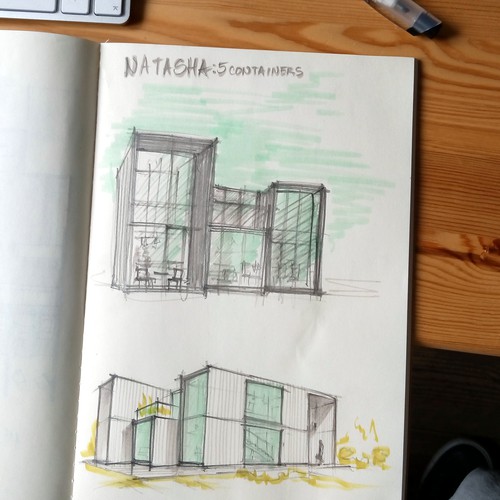 NATASHA: 5 CONTAINERS